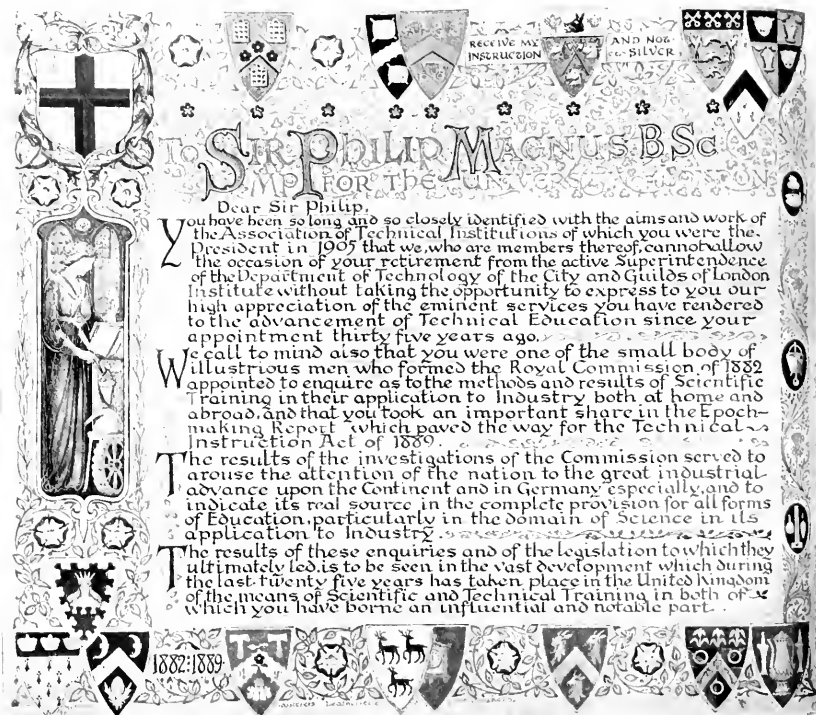 RECEIVE MY
INSTRUCTION
AND NOT
SILVER
TO SIR PHILIP MAGNUS. B Sc
MP FOR THE
Dear Sir Philip,
You have been so long and so closely identified with the aims and work of
the Association of Technical Institutions of which you were the
President in 1905 that we, who are members thereof, cannot allow
the occasion of your retirement from the active Superintendence
of the Department of Technology of the City and Guilds of London
Institute without taking the opportunity to express to you our
high appreciation of the eminent services you have rendered
to the advancement of Technical Education since your
appointment thirty five years ago.
We call to mind also that you were one of the small body of
illustrious men who formed the Royal Commission of 1882
appointed to enquire as to the methods and results of Scientific
Training in their application to Industry both at home and
abroad, and that you took an important share in the Epoch-
making Report which paved the way for the Technical
Instruction Act of 1889.
The results of the investigations of the Commission served to
arouse the attention of the nation to the great industrial
advance upon the Continent and in Germany especially, and to
indicate its real source in the complete provision for all forms
of Education, particularly in the domain of Science in its
application to Industry.
The results of these enquiries and of the legislation to which they
ultimately led, is to be seen in the vast development which during
the last twenty five years has taken place in the United Kingdom
of the means of Scientific and Technical Training in both of
which you have borne an influential and notable part.
1882:1889